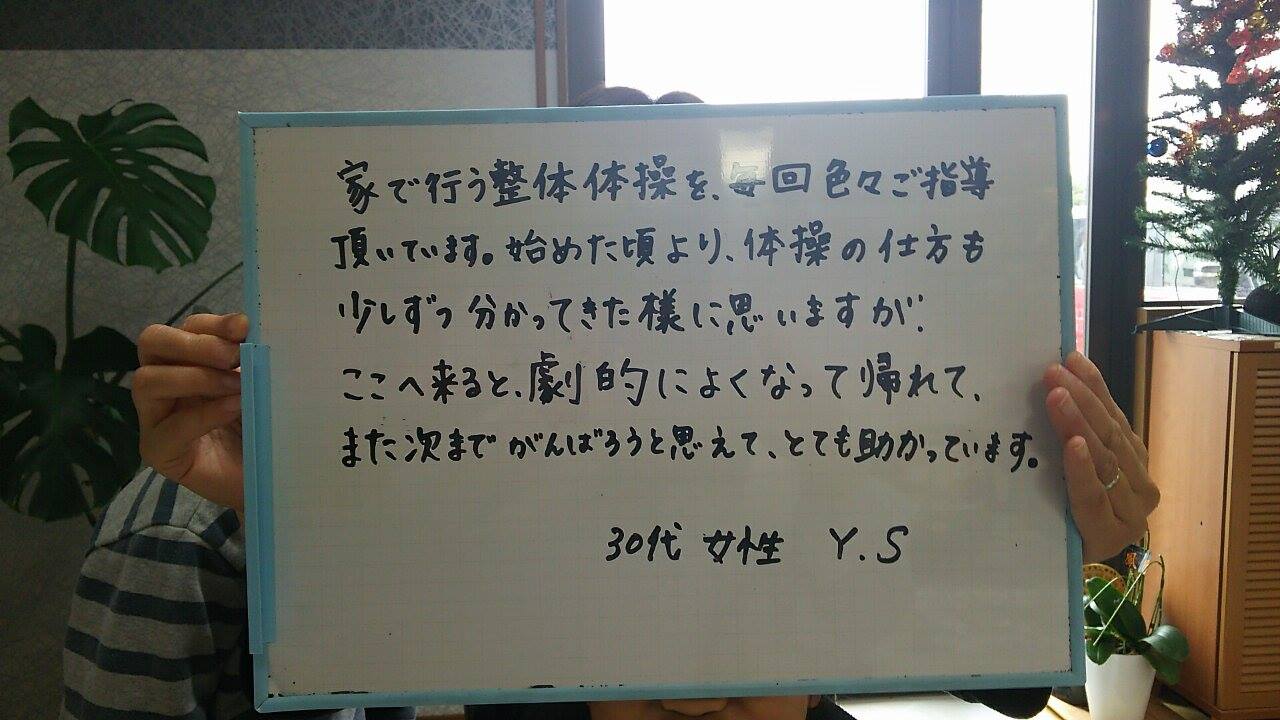 家で行う整体体操を、毎回色々ご指導
頂いています。始めた頃より、体操の仕方も
少しずつ分かってきた様に思いますが、
ここへ来ると、劇的によくなって帰れて、
また次までがんばろうと思えて、とても助かっています。
30代 女性 Y.S